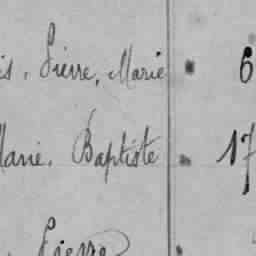 is, Pierre, Marie 6
Marie, Baptiste 17
Pierre